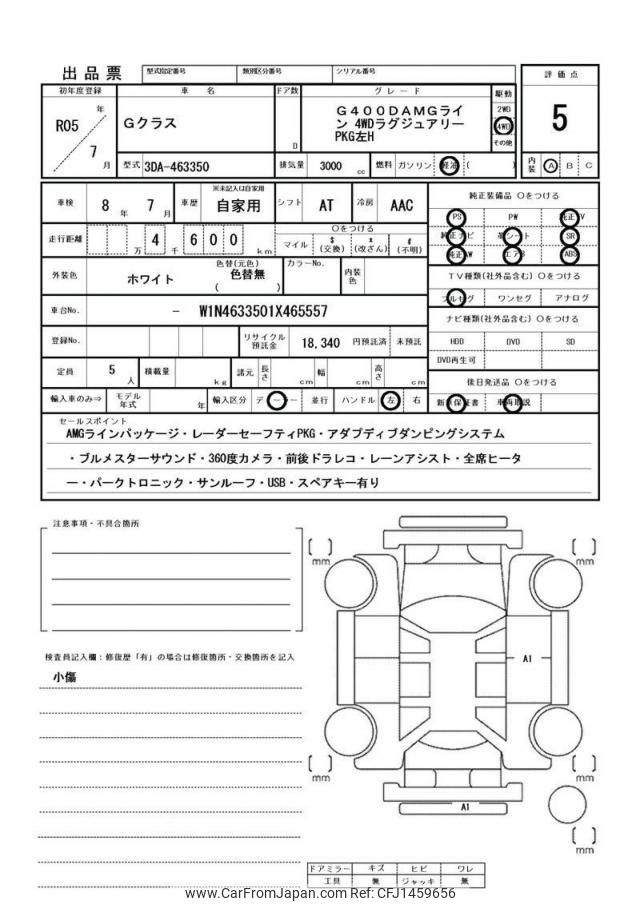 出品票 型式指定番号 類別区分番号 シリアル番号 評価点
初年度登録 車名 ドア数 グレード 駆動
R05 年 7 月 Gクラス D G400DAMGライン 4WDラグジュアリーPKG左H 2WD 4WD その他 5
型式 3DA-463350 排気量 3000 cc 燃料 ガソリン 軽油 ( ) 内装 A B C
車検 8 年 7 月 車歴 ※未記入は自家用 自家用 シフト AT 冷房 AAC 純正装備品 Oをつける
走行距離 万 4 千 6 0 0 km Oをつける マイル $ (交換) x (改ざん) # (不明)
PS PW 純正TV
純正ナビ 革シート SR
純正AW エアB ABS
外装色 ホワイト 色替(元色) 色替無 ( ) カラーNo. 内装色
TV種類(社外品含む) Oをつける
フルセグ ワンセグ アナログ
車台No. - W1N4633501X465557
ナビ種類(社外品含む) Oをつける
登録No. リサイクル預託金 18,340 円預託済 未預託
HDD DVD SD
DVD再生可
定員 5 人 積載量 kg 諸元 長さ cm 幅 cm 高さ cm
後日発送品 Oをつける
輸入車のみ⇒ モデル年式 年 輸入区分 ディーラー 並行 ハンドル 左 右
新車保証書 車両取説
セールスポイント
AMGラインパッケージ・レーダーセーフティPKG・アダプティブダンピングシステム
・ブルメスターサウンド・360度カメラ・前後ドラレコ・レーンアシスト・全席ヒータ
ー・パークトロニック・サンルーフ・USB・スペアキー有り
注意事項・不具合箇所
[ ] mm
[ ] mm
検査員記入欄：修復歴「有」の場合は修復箇所・交換箇所を記入
小傷
A1
[ ] mm
[ ] mm
A1
[ ] mm
ドアミラー キズ ヒビ ワレ
工具 無 ジャッキ 無
www.CarFromJapan.com CFJ1459656